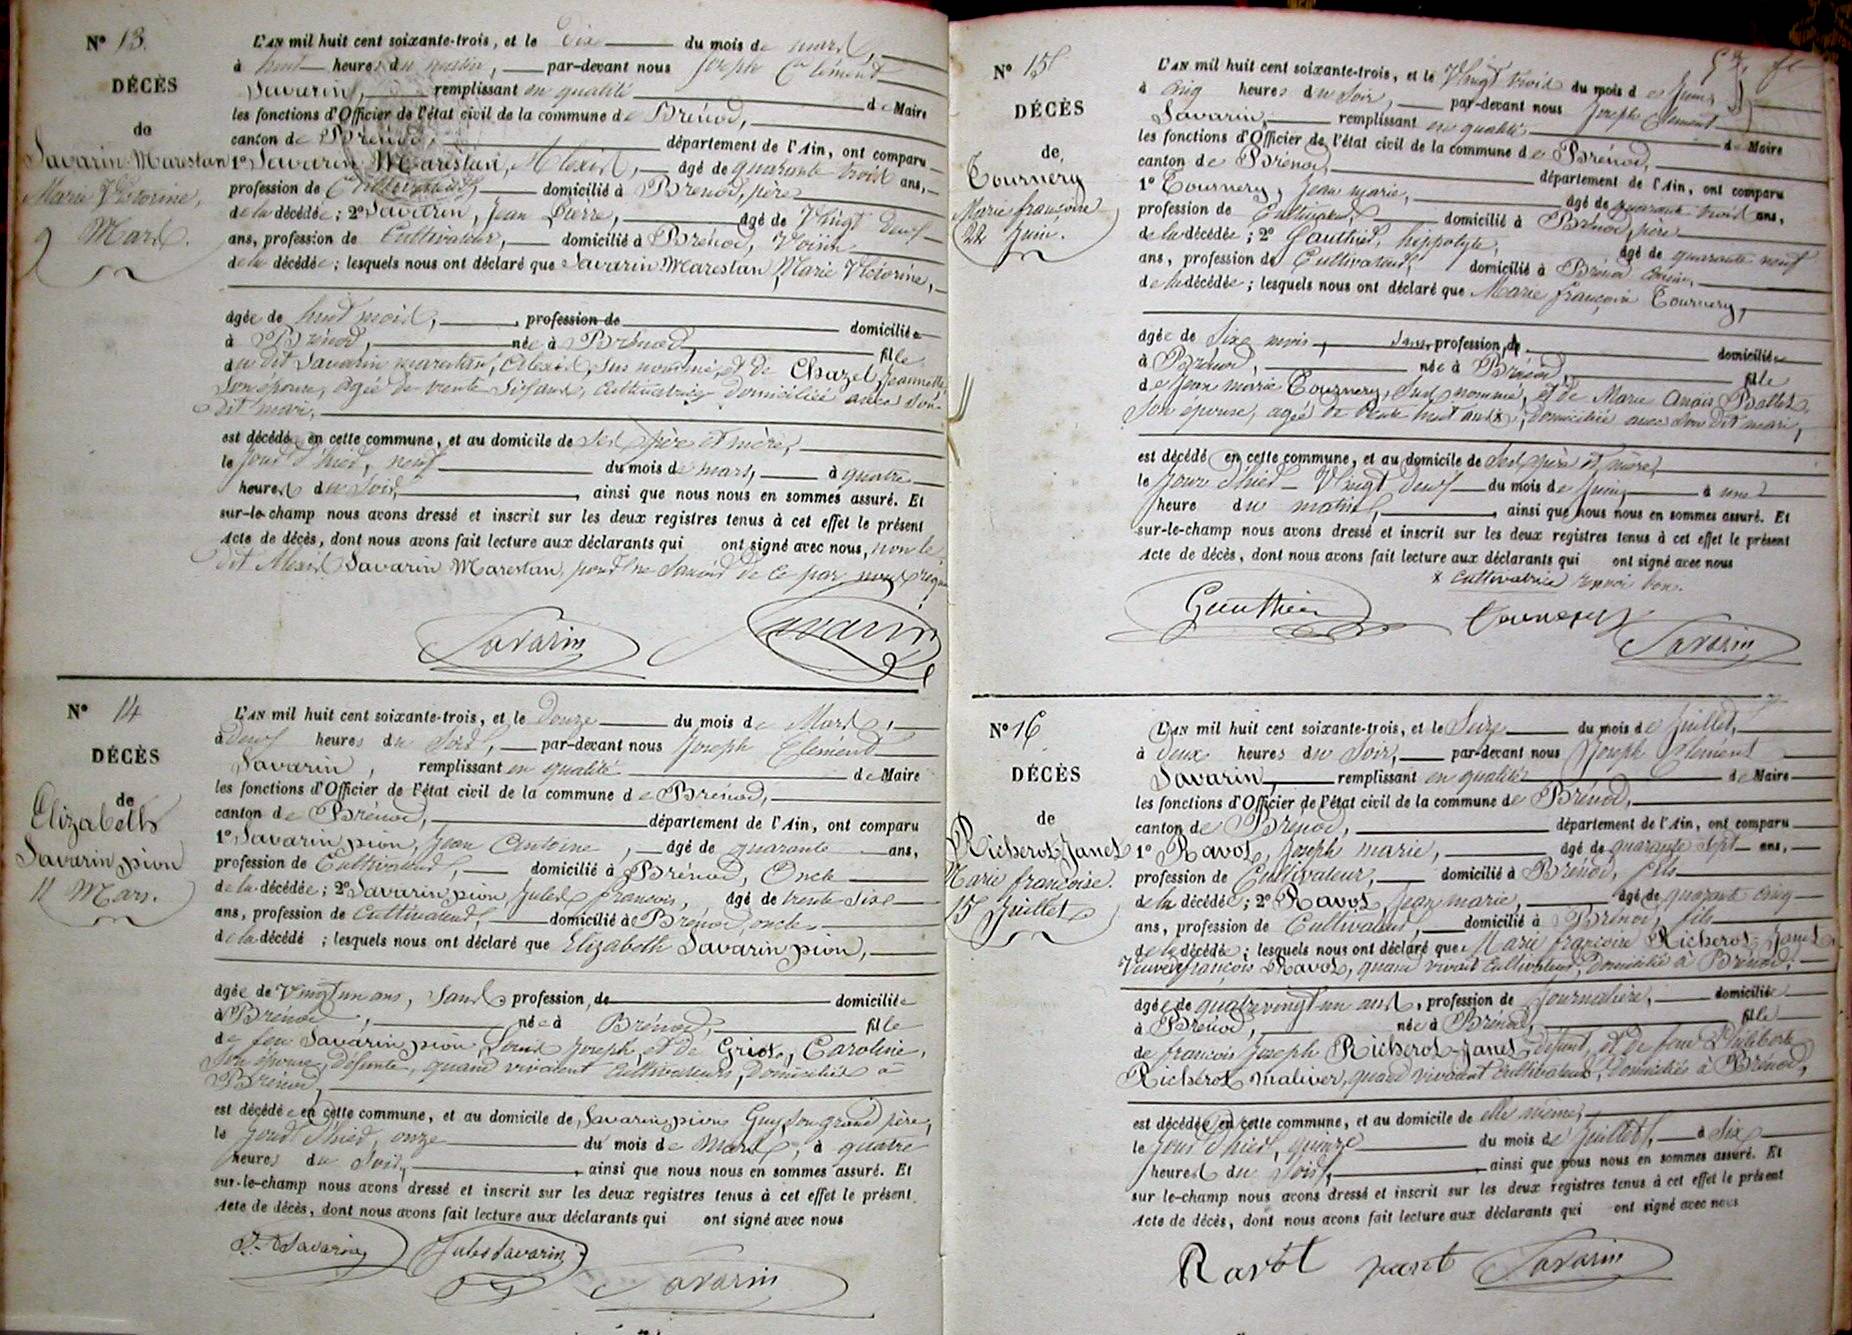 N° 13.
DÉCÈS
de
Savarin Marestan
Marie Victorine,
9 Mars.
L'AN mil huit cent soixante-trois, et le dix du mois de mars,
à huit heures du matin, par-devant nous Joseph Clément
Savarin, remplissant en qualité de Maire
les fonctions d'Officier de l'état civil de la commune de Brénod,
canton de Brénod, département de l'Ain, ont comparu
1° Savarin Marestan, Alexis, âgé de quarante trois ans,
profession de Cultivateur, domicilié à Brénod, père
de la décédée; 2° Savarin, Jean Pierre, âgé de Vingt deux
ans, profession de Cultivateur, domicilié à Brénod, Voisin
de la décédée; lesquels nous ont déclaré que Savarin Marestan, Marie Victorine,
âgée de huit mois, profession de domiciliée
à Brénod, née à Brénod fille
du dit Savarin marestan, Alexis, sus nommé, et de Chazel, Jeannette
son épouse, agée de trente six ans, cultivatrice domiciliée avec son
dit mari.
est décédée en cette commune, et au domicile de ses père et mère,
le jour d'hier, neuf du mois de mars, à quatre
heures du soir, ainsi que nous nous en sommes assuré. Et
sur-le-champ nous avons dressé et inscrit sur les deux registres tenus à cet effet le présent
Acte de décès, dont nous avons fait lecture aux déclarants qui ont signé avec nous, non le
dit Alexis Savarin Marestan, pour ne savoir de ce par nous requis
Savarin Savarin
N° 14
DÉCÈS
de
Elizabeth
Savarin pion
11 Mars.
L'AN mil huit cent soixante-trois, et le douze du mois de Mars,
à deux heures du soir, par-devant nous Joseph Clément
Savarin, remplissant en qualité de Maire
les fonctions d'Officier de l'état civil de la commune de Brénod,
canton de Brénod, département de l'Ain, ont comparu
1° Savarin pion, Jean Antoine, âgé de quarante ans,
profession de Cultivateur, domicilié à Brénod, Oncle
de la décédée; 2° Savarin pion Jules françois, âgé de trente six
ans, profession de Cultivateur, domicilié à Brénod, oncle
de la décédé; lesquels nous ont déclaré que Elizabeth Savarin pion,
âgée de Vingt un ans, sans profession, de domiciliée
à Brénod, née à Brénod, fille
de feu Savarin pion, Louis Joseph, et de Griot, Caroline,
son épouse, défunte, quand vivaient cultivateurs, domiciliés à
Brénod,
est décédée en cette commune, et au domicile de Savarin pion Guy, son grand père,
le jour d'hier, onze du mois de Mars, à quatre
heures du soir, ainsi que nous nous en sommes assuré. Et
sur-le-champ nous avons dressé et inscrit sur les deux registres tenus à cet effet le présent
Acte de décès, dont nous avons fait lecture aux déclarants qui ont signé avec nous
Savarin Jules Savarin
Savarin
N° 15
DÉCÈS
de
Tournery
Marie françoise
22 Juin.
L'AN mil huit cent soixante-trois, et le Vingt trois du mois de Juin,
à cinq heures du soir, par-devant nous Joseph Clément
Savarin, remplissant en qualité de Maire
les fonctions d'Officier de l'état civil de la commune de Brénod,
canton de Brénod, département de l'Ain, ont comparu
1° Tournery, Jean marie, âgé de quarante trois ans,
profession de Cultivateur, domicilié à Brénod, père
de la décédée; 2° Gauthier, hippolyte, âgé de quarante neuf
ans, profession de Cultivateur, domicilié à Brénod
de la décédée; lesquels nous ont déclaré que Marie françoise Tournery,
âgée de six mois, sans profession, de domiciliée
à Brénod, née à Brénod, fille
de Jean marie Tournery, sus nommé, et de Marie Anais Ballet,
son épouse, agée de trente huit ans x, domiciliée avec son dit mari,
est décédé en cette commune, et au domicile de ses père et mère,
le jour d'hier Vingt deux du mois de juin, à une
heure du matin, ainsi que nous nous en sommes assuré. Et
sur-le-champ nous avons dressé et inscrit sur les deux registres tenus à cet effet le présent
Acte de décès, dont nous avons fait lecture aux déclarants qui ont signé avec nous
x cultivatrice renvoi bon.
Gauthier Tournery
Savarin
N° 16
DÉCÈS
de
Richerot Janet
Marie françoise.
15 Juillet
L'AN mil huit cent soixante-trois, et le Seize du mois de Juillet,
à deux heures du soir, par-devant nous Joseph Clément
Savarin, remplissant en qualité de Maire
les fonctions d'Officier de l'état civil de la commune de Brénod,
canton de Brénod, département de l'Ain, ont comparu
1° Ravot, Joseph marie, âgé de quarante sept ans,
profession de Cultivateur, domicilié à Brénod, fils
de la décédée; 2° Ravot Jean marie, âgé de quarante cinq
ans, profession de Cultivateur, domicilié à Brénod, fils
de la décédée; lesquels nous ont déclaré que Marie françoise Richerot-Janet
Veuve françois Ravot, quand vivait cultivateur, domicilié à Brénod,
âgée de quatre vingt un ans, profession de Journalière, domiciliée
à Brénod, née à Brénod, fille
de françois Joseph Richerot-Janet, défunt, et de feue Philiberte
Richerot maliver, quand vivaient cultivateurs, domiciliés à Brénod,
est décédée en cette commune, et au domicile de elle même,
le jour d'hier, quinze du mois de Juillet, à six
heures du soir, ainsi que nous nous en sommes assuré. Et
sur le-champ nous avons dressé et inscrit sur les deux registres tenus à cet effet le présent
Acte de décès, dont nous avons fait lecture aux déclarants qui ont signé avec nous
Ravot ravot Savarin